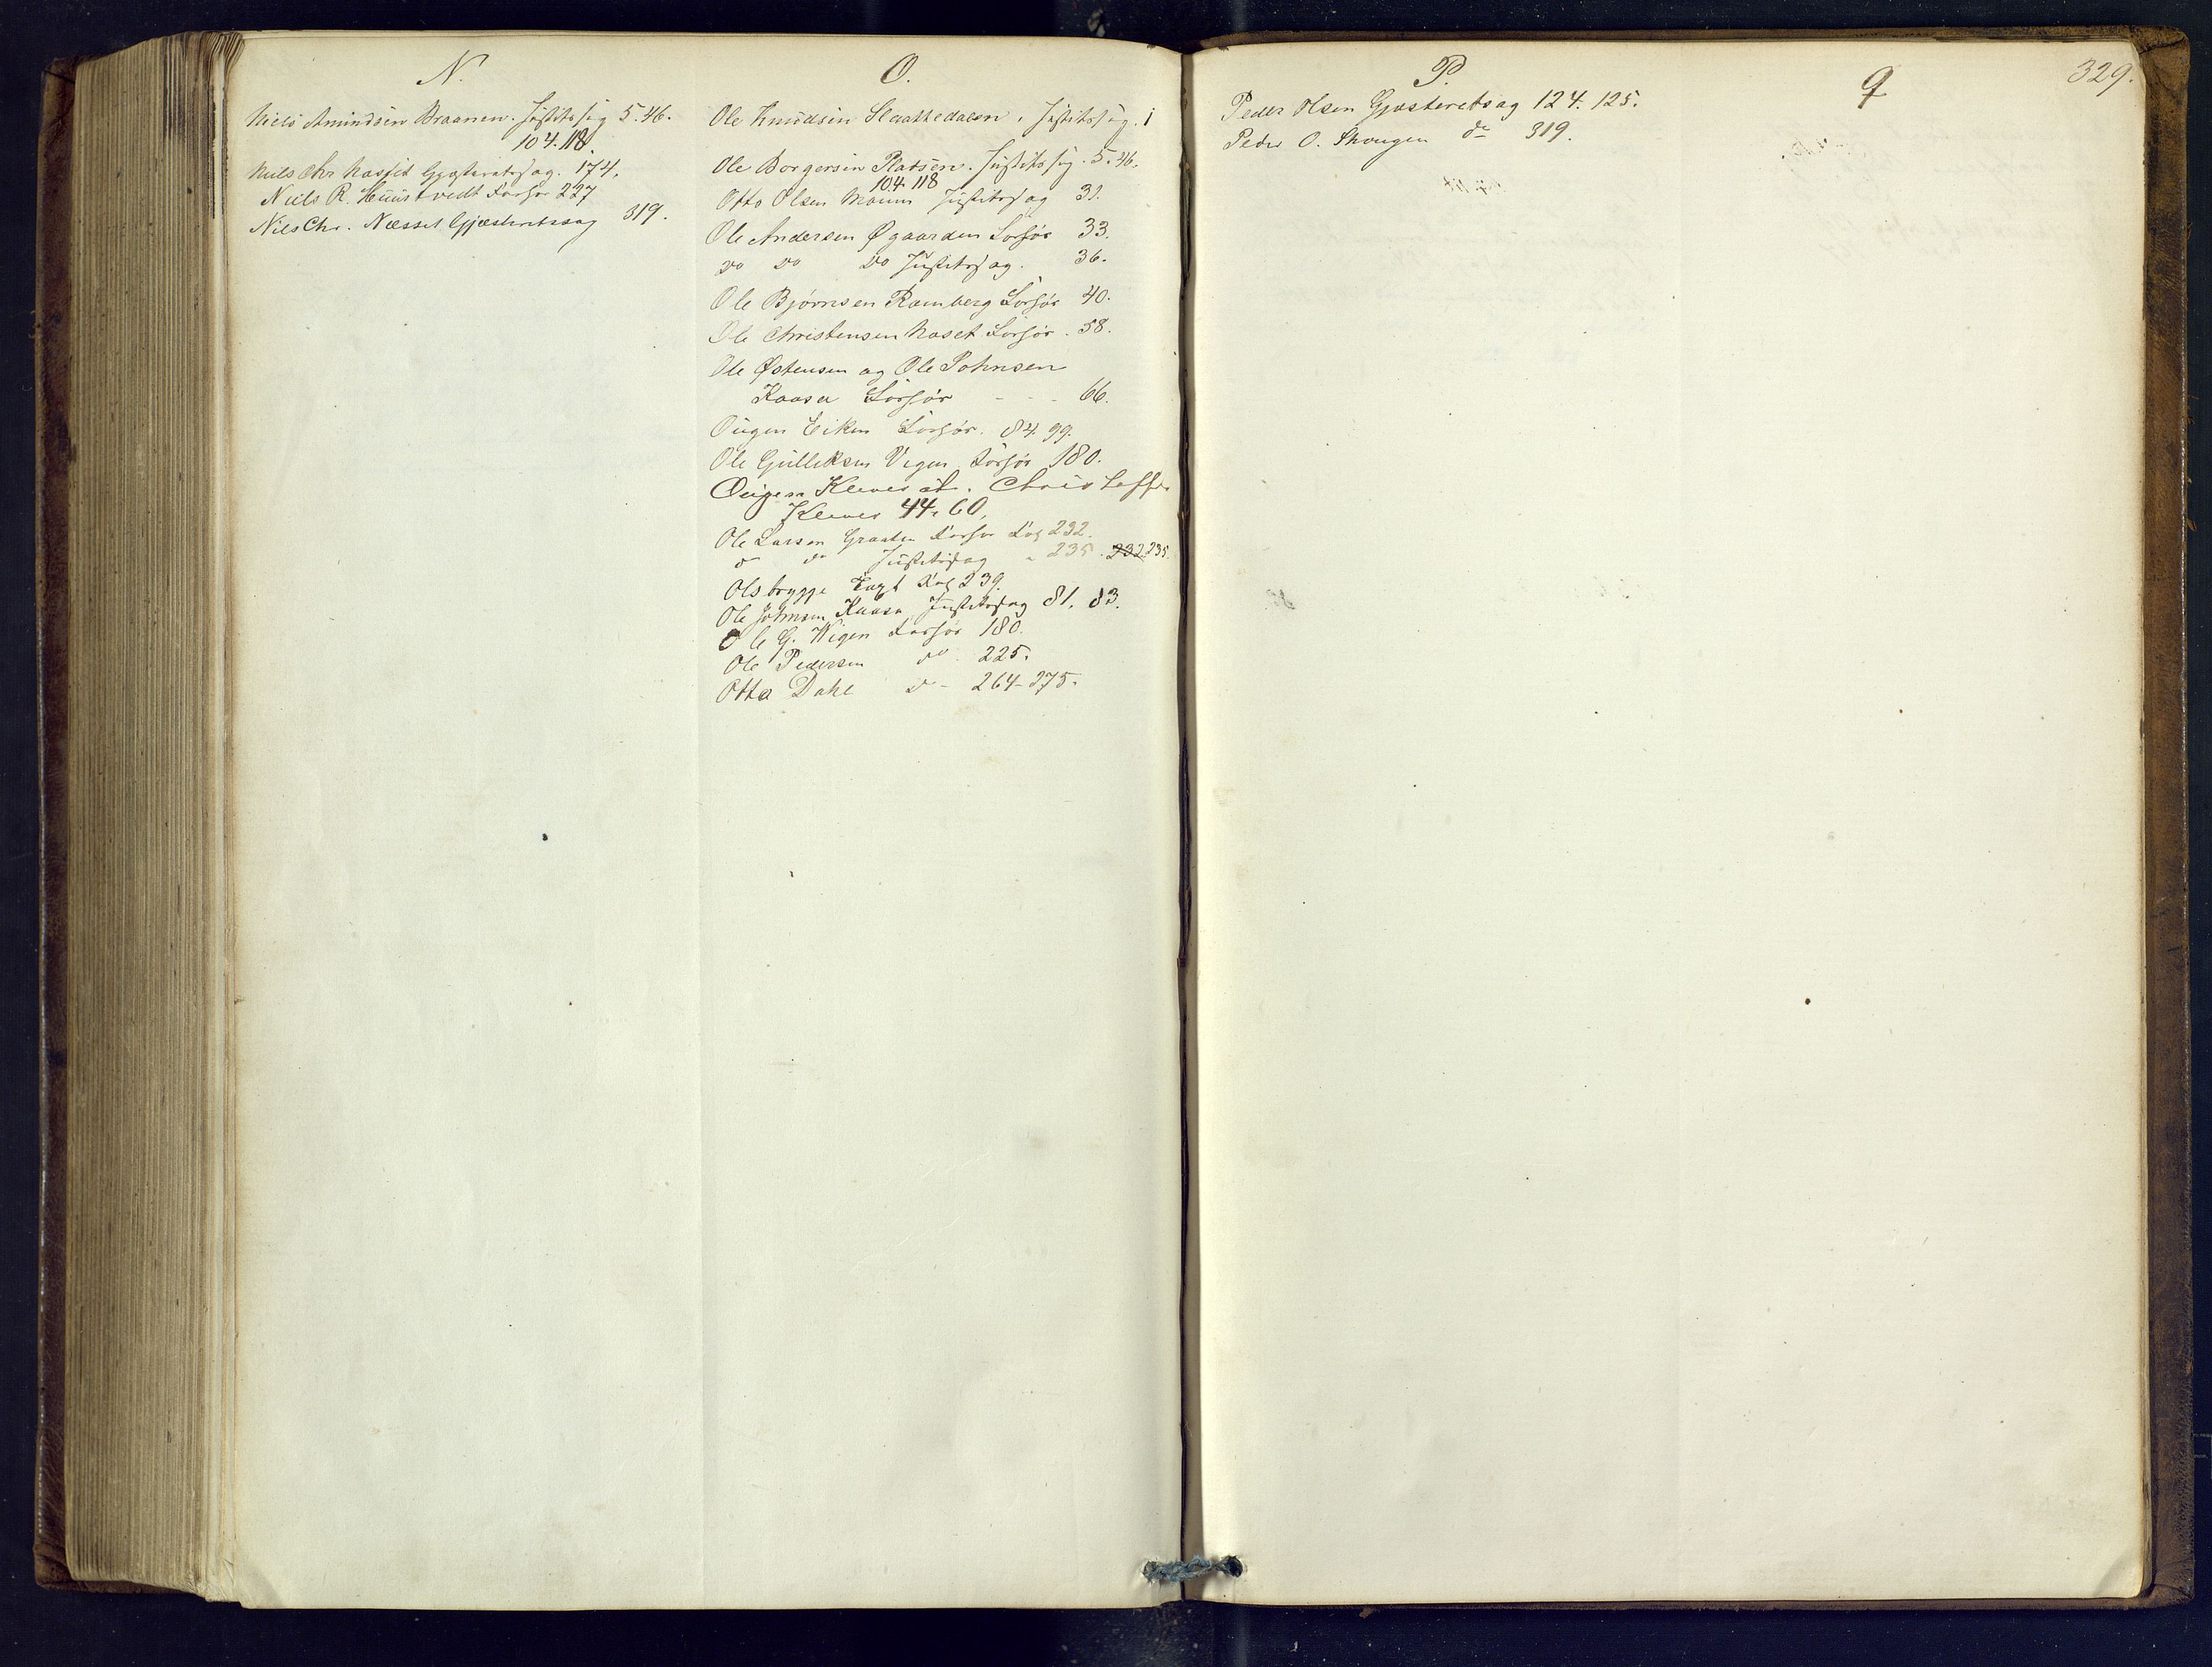 N.
Niels Amundsen Braanen. Justitssag 5. 46.
104. 118.
Niels Chr Næsset Gjæsteretssag. 174.
Niels R. Huustvedt Forhør 227
Nils Chr. Næsset Gjæsteretssag 319.
O.
Ole Knudsen Slaattedalen, Justitssag. 1
Ole Borgersen Pladsen. Justitssag. 5. 46.
104 118
Otto Olsen Moum Justitssag 31.
Ole Andersen Øgaarden Forhør 33.
Do Do Do Justitssag. 36.
Ole Bjørnsen Ramberg Forhør 40.
Ole Christensen Naset Forhør. 58.
Ole Østensen og Ole Johnsen
Kaasa Forhør - - - 66.
Ougen Eiken Forhør. 84. 99.
Ole Gulliksen Vegen Forhør 180.
Ougen Klever ctr. Christoffer
Klever 44. 60.
Ole Larsen Graaten Forhør Fol 232.
do do Justitssag " 235. 232 235.
Olsbrygge Extr Fol 239.
Ole Johnsen Kaasa, Justitssag 81. 83.
Ole G. Wigen Forhør 180.
Ole Pedersen do. 225.
Otto Dahl do - 264-275.
P.
Peder Olsen Gjæsteretssag 124. 125.
Peder O. Skougen do 319.
Q
329.